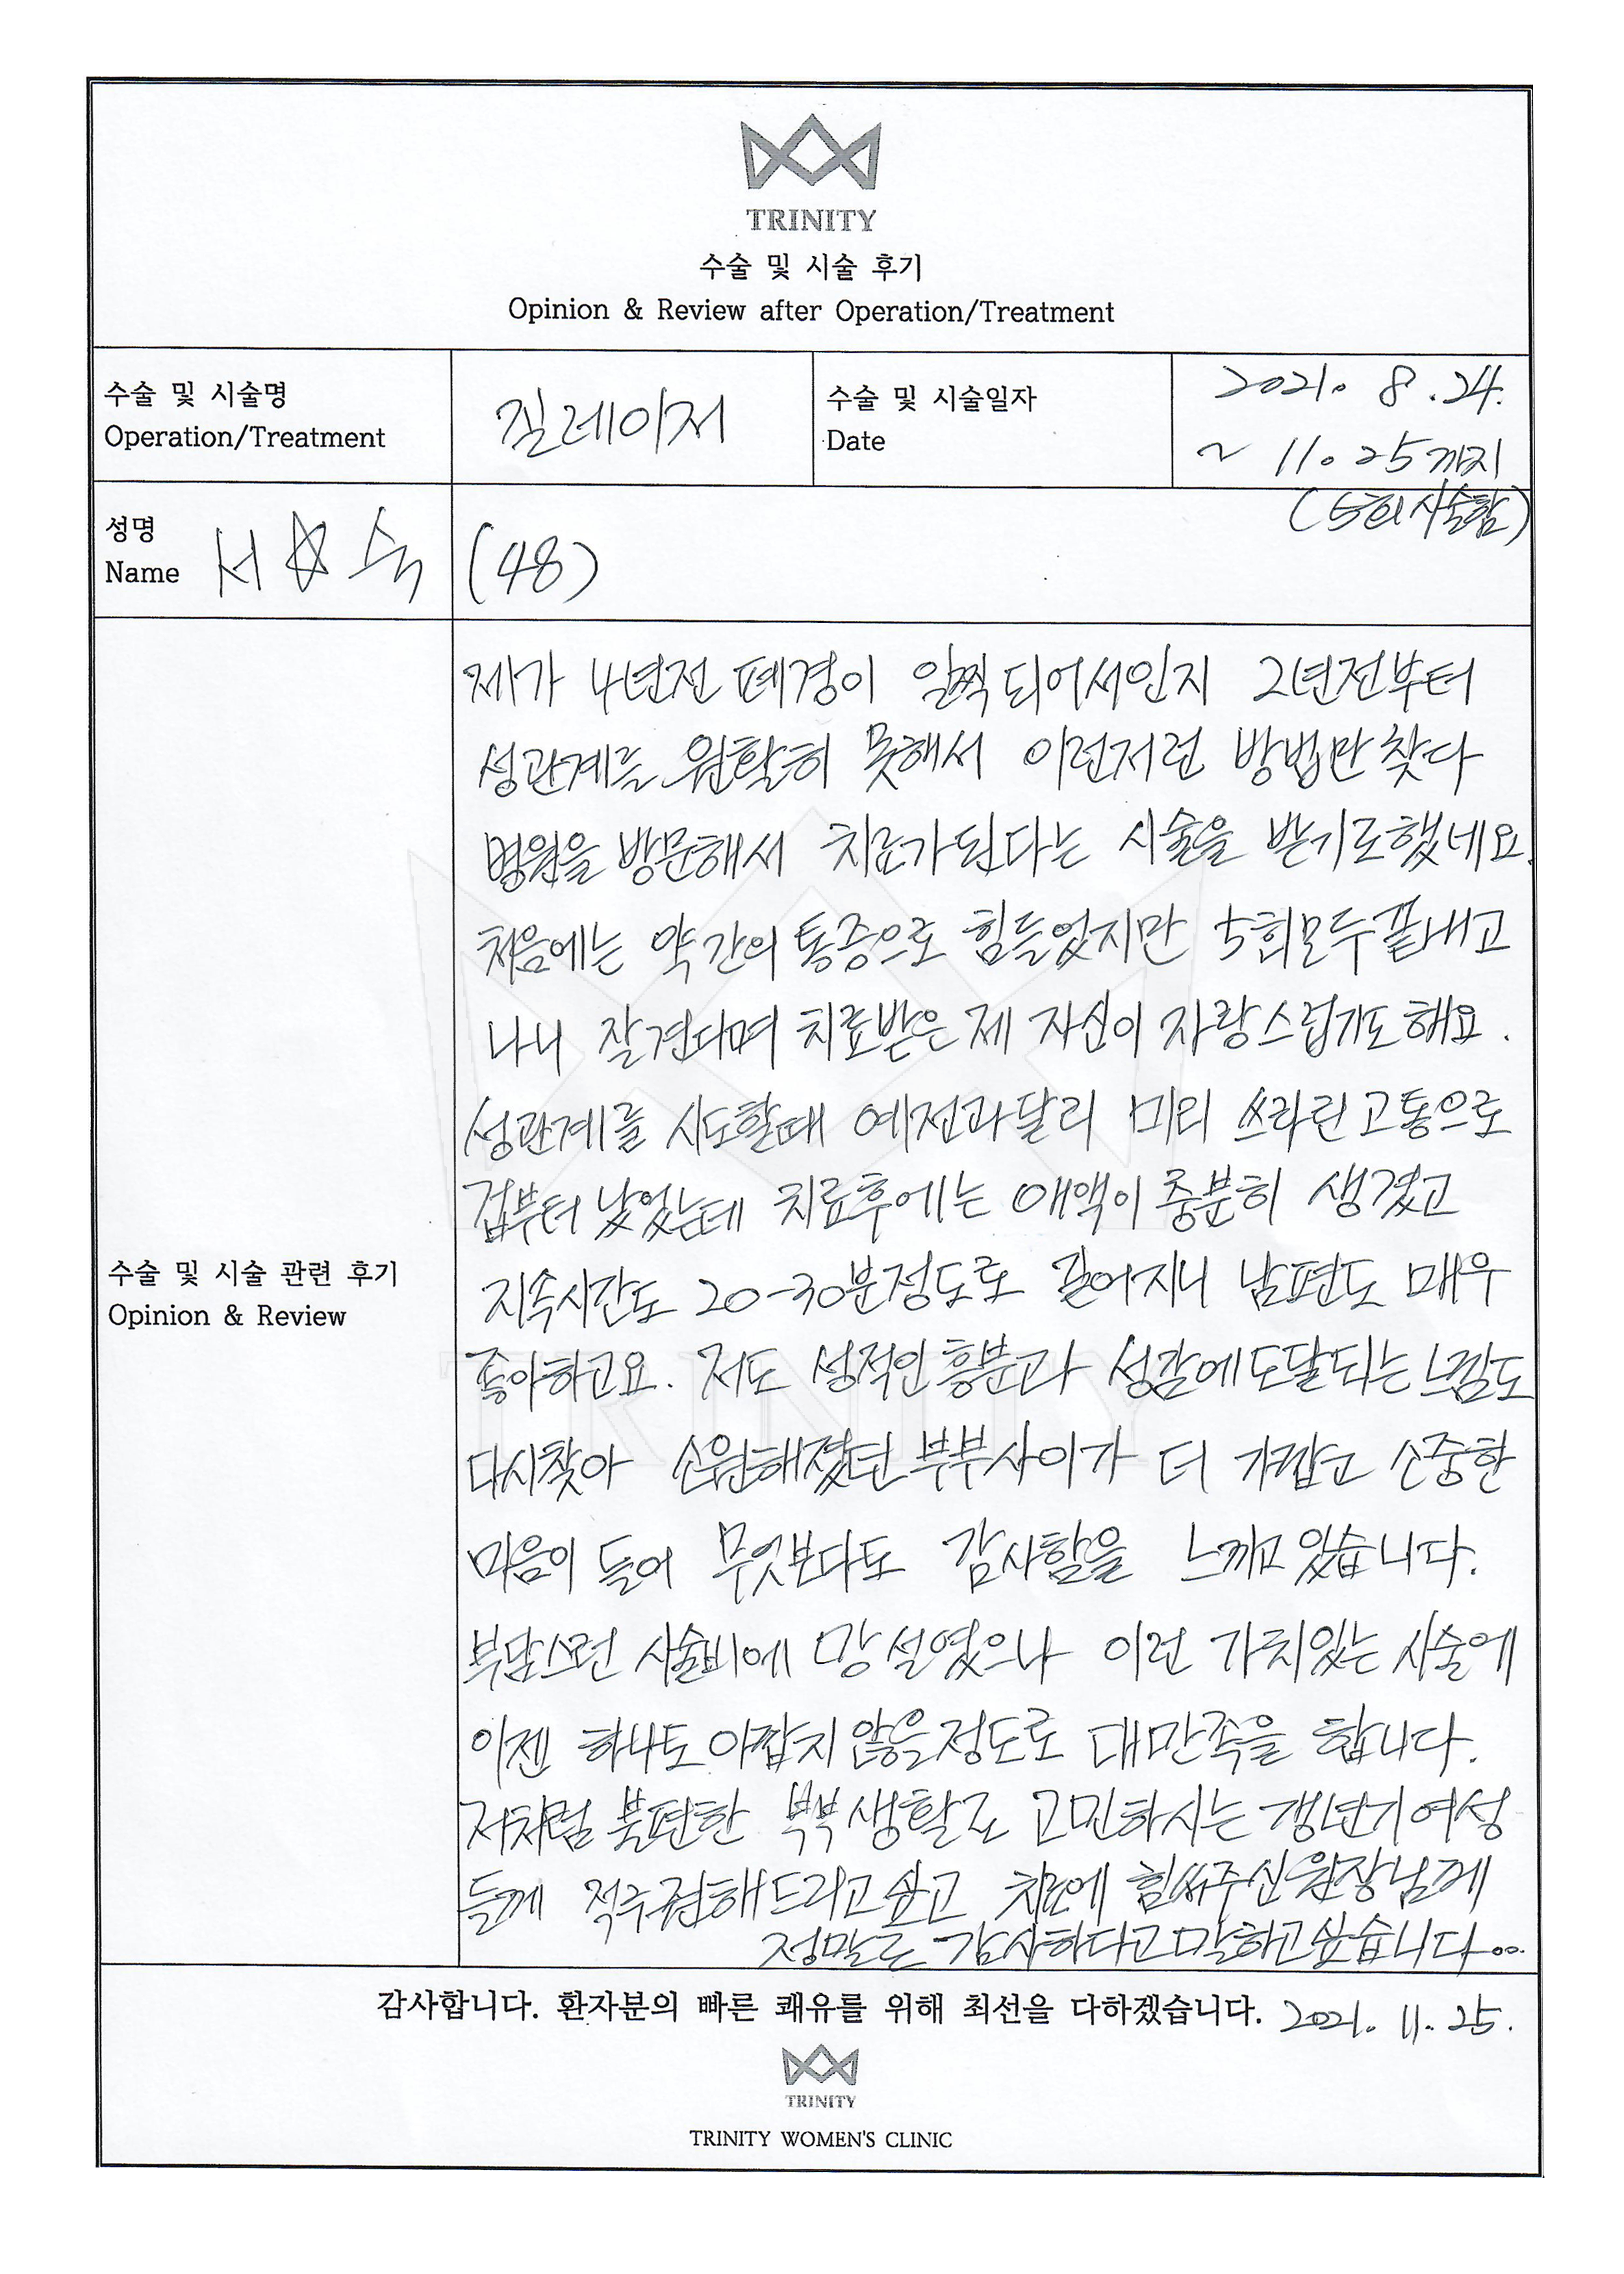 TRINITY
수술 및 시술 후기
Opinion & Review after Operation/Treatment
수술 및 시술명
Operation/Treatment
질레이저
수술 및 시술일자
Date
2021. 8. 24.
~ 11. 25까지
(5회 시술함)
성명
Name
서☆숙
(48)
제가 4년전 폐경이 일찍 되어서인지 2년전부터
성관계를 원활히 못해서 이런저런 방법만 찾다
병원을 방문해서 치료가 된다는 시술을 받기로했네요.
처음에는 약간의 통증으로 힘들었지만 5회모두 끝내고
나니 잘견디며 치료받은 제 자신이 자랑스럽기도 해요.
성관계를 시도할때 예전과달리 미리 쓰라린 고통으로
겁부터 났었는데 치료후에는 애액이 충분히 생겼고
지속시간도 20-30분정도로 길어지니 남편도 매우
좋아하고요. 저도 성적인 흥분과 성감에 도달되는 느낌도
다시찾아 소원해졌던 부부사이가 더 가깝고 소중한
마음이 들어 무엇보다도 감사함을 느끼고 있습니다.
부담스런 시술비에 망설였으나 이런 가치있는 시술에
이젠 하나도 아깝지 않을정도로 대만족을 합니다.
저처럼 불편한 부부생활로 고민하시는 갱년기여성
들께 적극권해드리고싶고 치료에 힘써주신 원장님께
정말로 감사하다고 말하고 싶습니다...
수술 및 시술 관련 후기
Opinion & Review
감사합니다. 환자분의 빠른 쾌유를 위해 최선을 다하겠습니다. 2021. 11. 25.
TRINITY
TRINITY WOMEN'S CLINIC